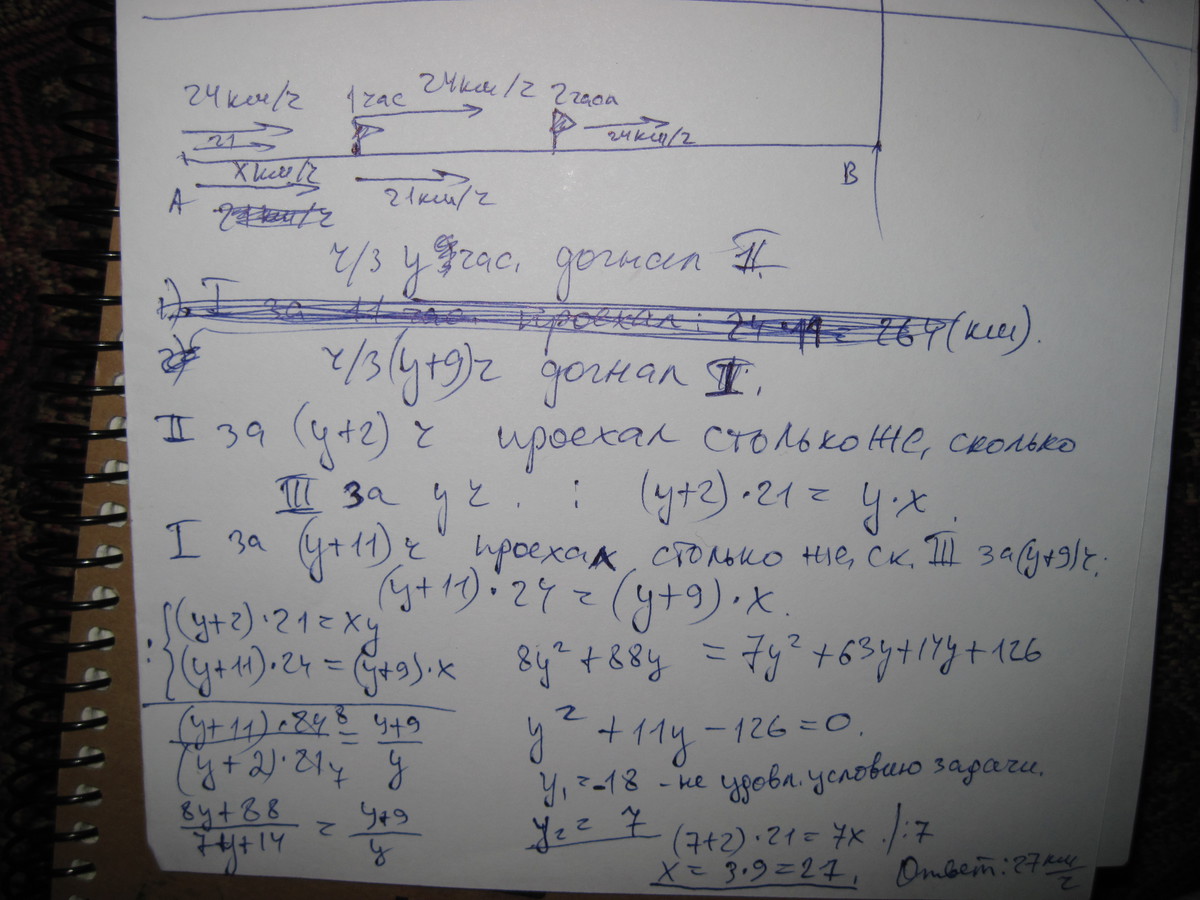 24км/ч 1час 24км/ч 2часа
21 24км/ч
A xкм/ч 21км/ч B
21км/ч
ч/з у час. догнал II.
1). I за 11 час. проехал: 24·11 = 264 (км).
2) ч/з (y+9)ч догнал I.
II за (y+2) ч проехал столько же, сколько
III за y ч. : (y+2)·21 = y·x.
I за (y+11) ч проехал столько же, ск. III за (y+9)ч:
(y+11)·24 = (y+9)·x.
: { (y+2)·21 = xy
(y+11)·24 = (y+9)·x
(y+11)·24 8 / (y+2)·21 7 = y+9 / y
8y+88 / 7y+14 = y+9 / y
8y² + 88y = 7y² + 63y + 14y + 126
y² + 11y - 126 = 0.
y₁ = -18 - не удовл. условию задачи.
y₂ = 7
(7+2)·21 = 7x /:7
x = 3·9 = 27.
Ответ: 27 км/ч